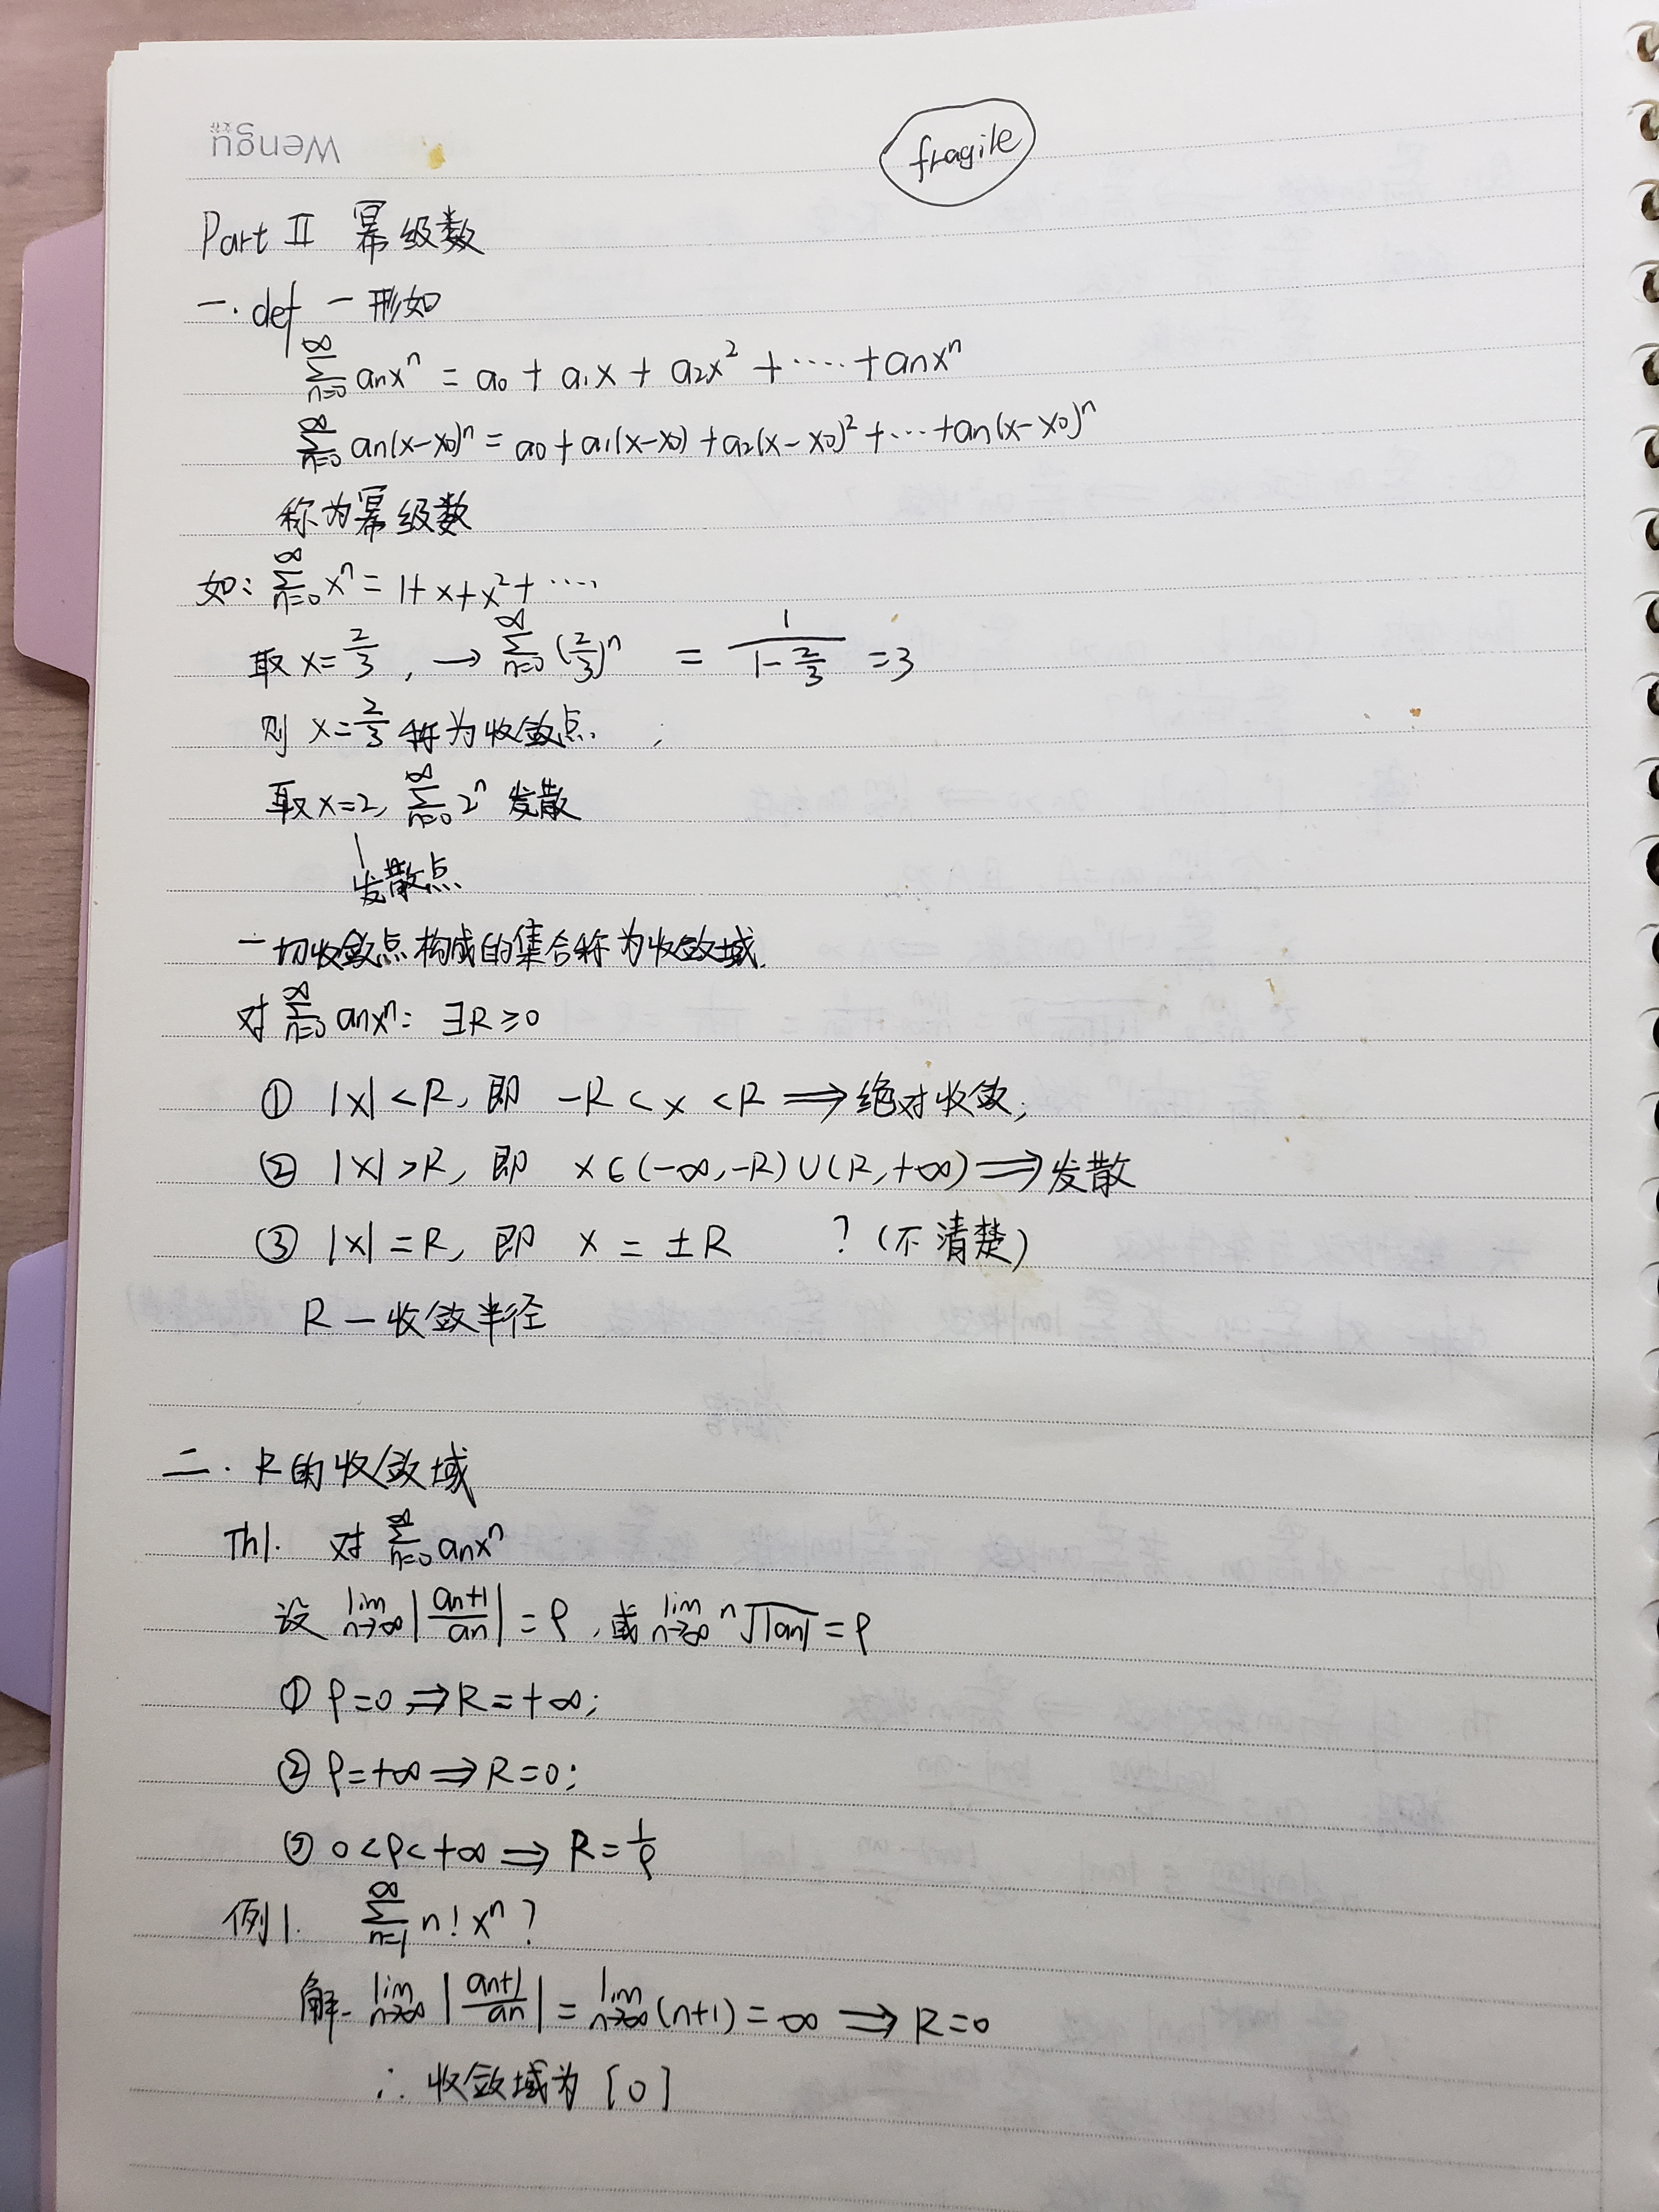 Wengu
fragile
Part Ⅱ 幂级数
一. def 一 形如
∑_{n=0}^{∞} anxⁿ = a0 + a1x + a2x² + ····· + anxⁿ
∑_{n=0}^{∞} an(x-x0)ⁿ = a0 + a1(x-x0) + a2(x-x0)² + ··· + an(x-x0)ⁿ
称为幂级数
如: ∑_{n=0}^{∞} xⁿ = 1 + x + x² + ····
取 x = 2/3 , → ∑_{n=0}^{∞} (2/3)ⁿ = 1/(1 - 2/3) = 3
则 x = 2/3 称为收敛点.
取 x=2, ∑_{n=0}^{∞} 2ⁿ 发散
发散点
一切收敛点构成的集合称为收敛域.
对 ∑_{n=0}^{∞} anxⁿ: ∃R ≥ 0
① |x| < R, 即 -R < x < R ⟹ 绝对收敛;
② |x| > R, 即 x ∈ (-∞, -R) ∪ (R, +∞) ⟹ 发散
③ |x| = R, 即 x = ±R ? (不清楚)
R — 收敛半径
二. R的收敛域
Th1. 对 ∑_{n=0}^{∞} anxⁿ
设 lim_{n→∞} |an+1/an| = ρ, 或 lim_{n→∞} ⁿ√|an| = ρ
① ρ=0 ⟹ R=+∞;
② ρ=+∞ ⟹ R=0;
③ 0<ρ<+∞ ⟹ R=1/ρ
例1. ∑_{n=1}^{∞} n! xⁿ ?
解- lim_{n→∞} |an+1/an| = lim_{n→∞} (n+1) = ∞ ⟹ R=0
∴ 收敛域为 [0]